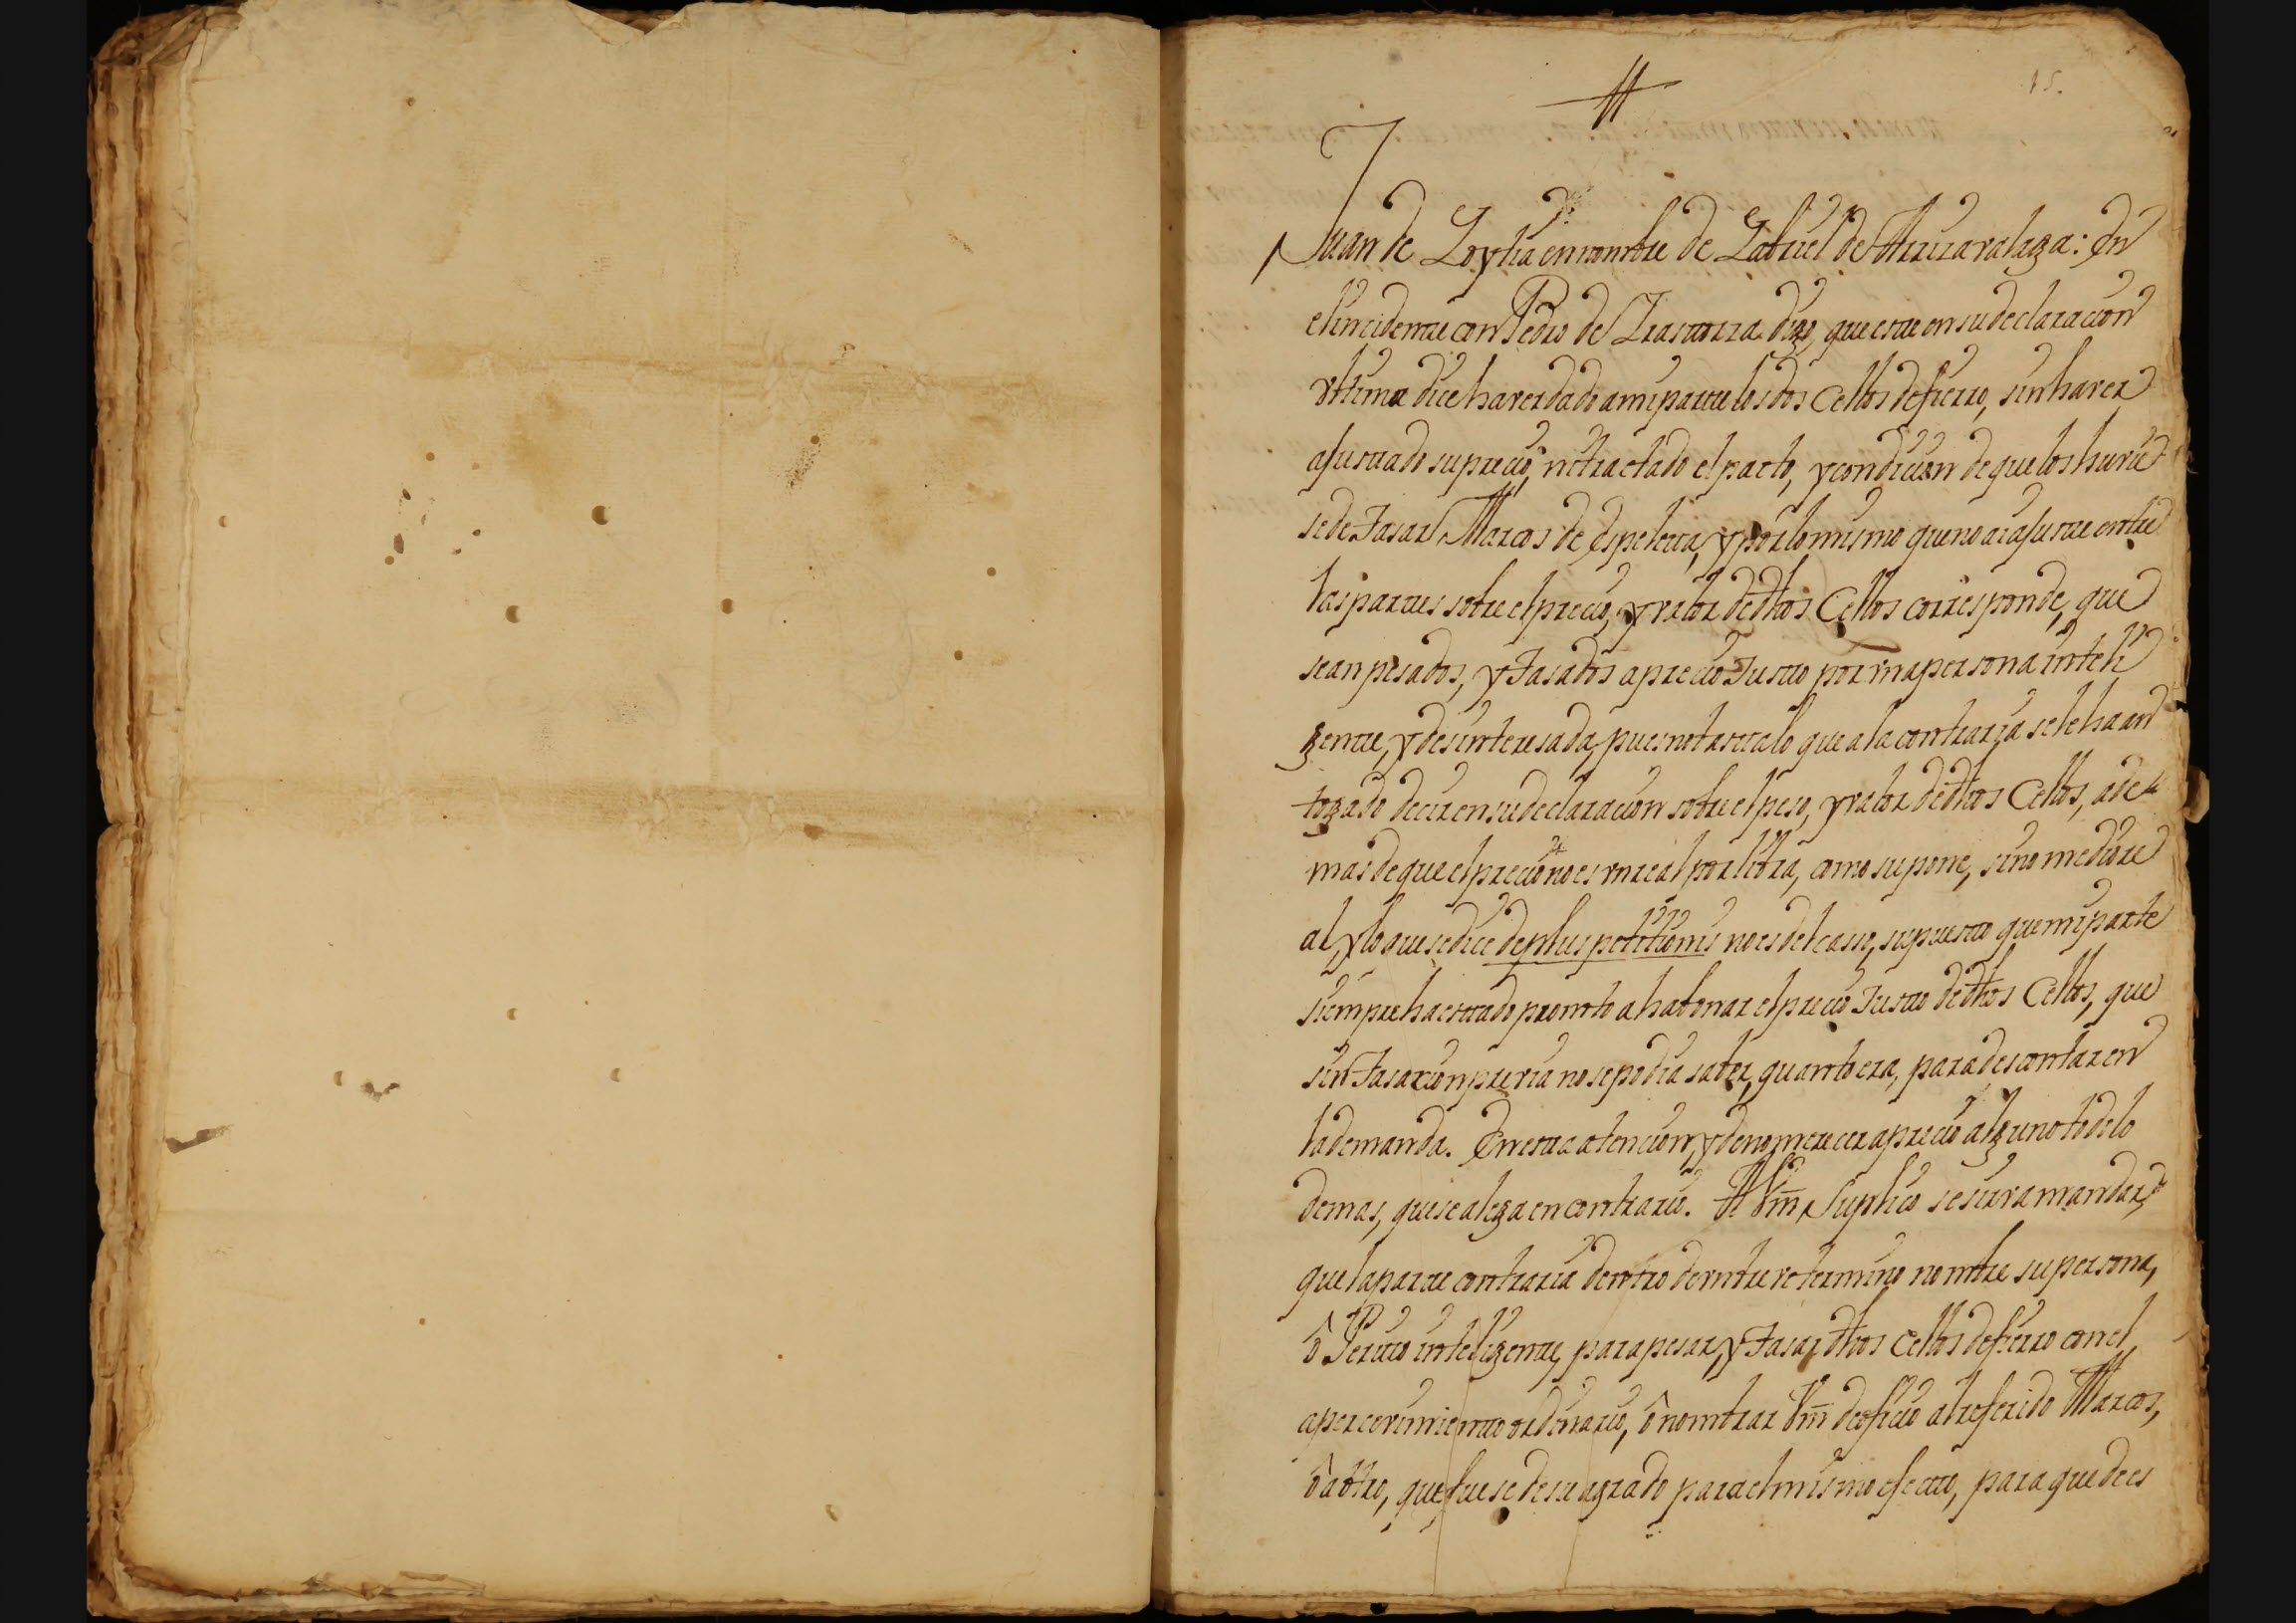 15.
Juan de Loytia en nombre de Gabriel de Arrizavalaga: En
el incidente con Pedro de Lrastorza digo, que este en su declaracion
vltima dice haver dado a mi parte los dos Cellos de fierro, sin haver
ajustado su precio, ni tractado el pacto, y condicion de que los huvie
se de Tasar Marcos de Espeleta, y por lo mismo que no ai ajuste entre
las partes sobre el precio, y valor de dhos Cellos corresponde, que
sean pesados, y Tasados a precio Justo por vna persona inteli
gente, y desinteresada, pues no basta lo que a la contraria se le ha an
togado decir en su declaracion sobre el peso, y valor de dhos Cellos, ade
mas de que el precio no es vn real por libra, como supone, sino medio re
al, y lo que se dice de plus petitionis no es del casso, supuesto que mi parte
siempre ha estado promto a habonar el precio Justo de dhos Cellos, que
sin Tasacion previa no se podia saber, quanto era, para descontar en
la demanda. En esta atencion, y de no merecer aprecio alguno todo lo
demas, que se alega en contrario. A Vm Suplico se sirva mandar,
que la parte contraria dentro de vn breve termino nombre su persona,
ô Perito inteligente, para pesar, y Tasar dhos Cellos de fierro con el
apercevimiento ordinario, ô nombrar Vm de oficio al referido Marcos,
ô a otro, que fuese de su agrado para el mismo efecto, para que de es